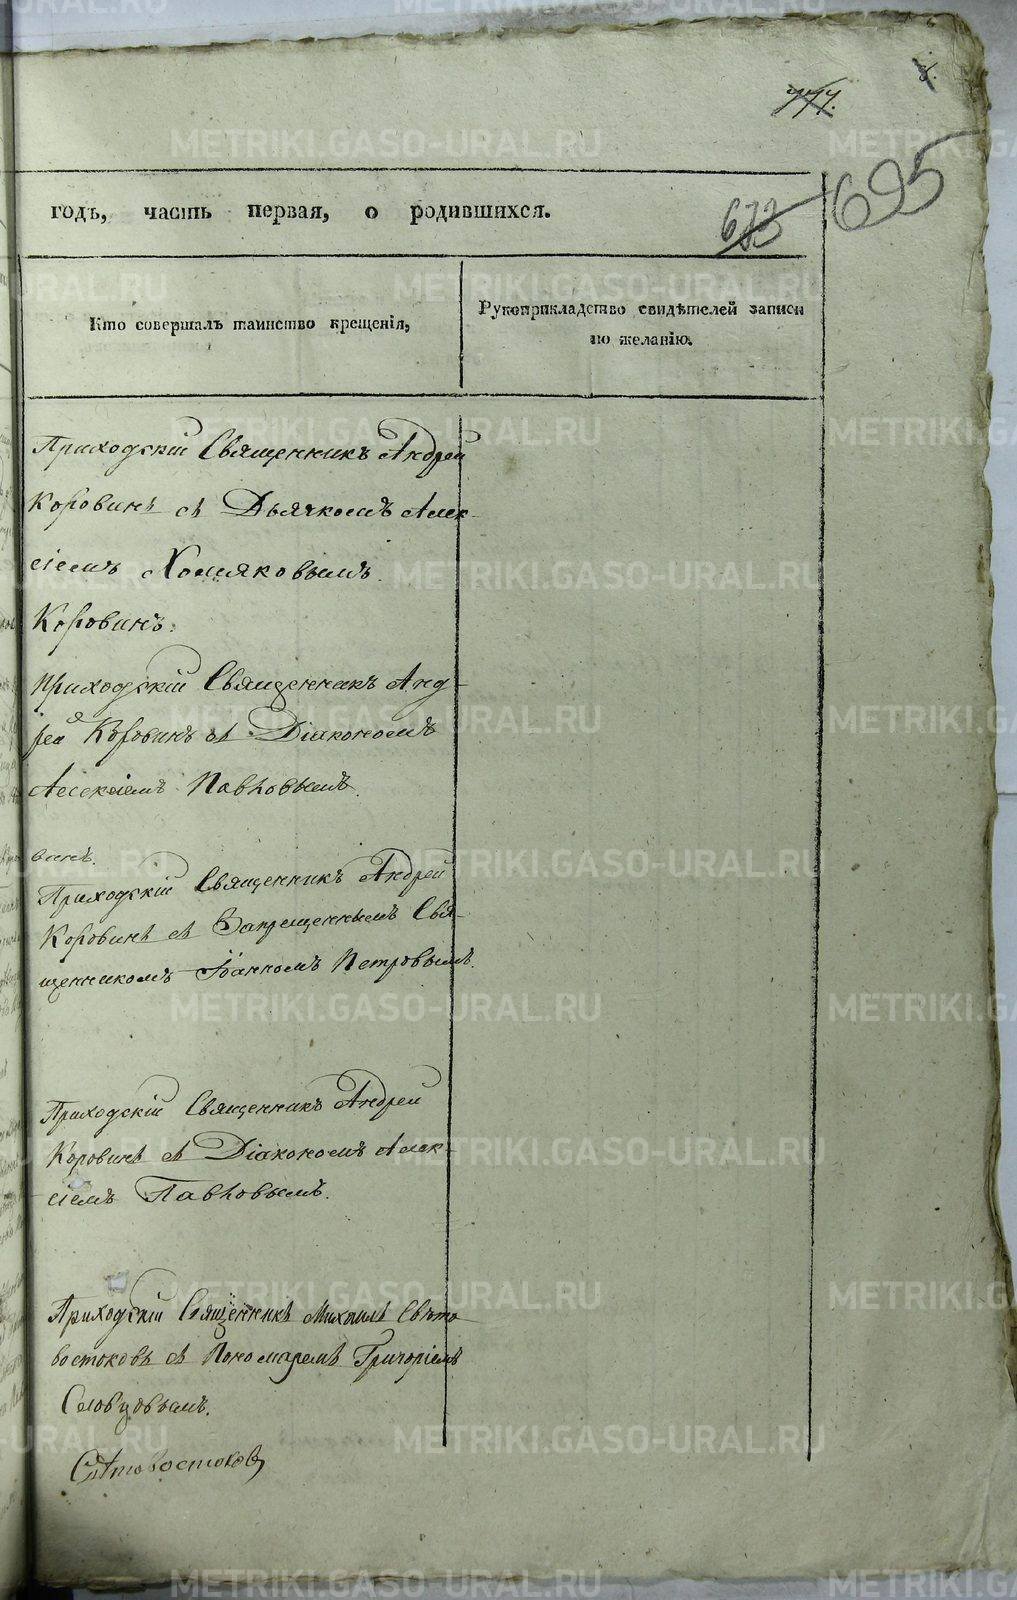 8.
777.
695
годъ, часть первая, о родившихся.
673
Кто совершалъ таинство крещенія,
Рукоприкладство свидѣтелей записи
по желанію.
Приходскій Священникъ Андрей
Коровинъ съ Дьячкомъ Алек-
сіемъ Хомяковымъ.
Коровинъ.
Приходскій Священникъ Анд-
рей Коровинъ съ Діакономъ
Алексіемъ Павловымъ.
винъ.
Приходскій Священникъ Андрей
Коровинъ съ Запрещеннымъ Свя-
щенникомъ Іоанномъ Петровымъ.
Приходскій Священникъ Андрей
Коровинъ съ Діакономъ Алек-
сіемъ Павловымъ.
Приходскій Священникъ Михаилъ Свѣто-
востоковъ съ Пономаремъ Григоріемъ
Словцовымъ.
METRIKI.GASO-URAL.RU